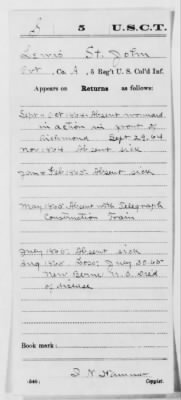 S | 5 | U.S.C.T.
Lewis St. John
Pvt., Co. A, 5 Reg't U. S. Col'd Inf.
Appears on Returns as follows:
Sept & Oct 1864 Absent wounded
in action in front of
Richmond Sept 29, 64
Nov 1864 Absent sick
Jan & Feb 1865 Absent sick
May 1865 Absent with Telegraph
Construction Train
July 1865 Absent sick
Aug 1865 Loss: July 30.65
New Berne N.C. Died
of disease
Book mark:
(546)
Copyist.